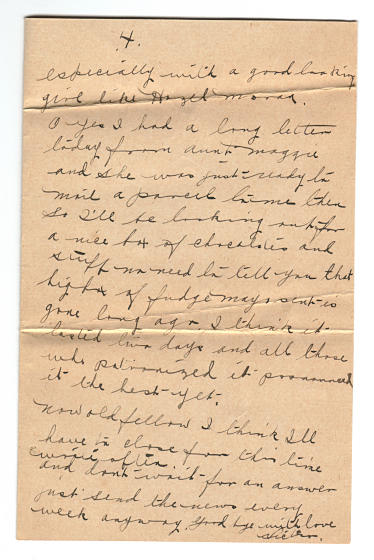 4.
especially with a good looking
girl like Hazel
O yes I had a long letter
today from aunt maggie
and she was just ready to
mail a parcel to me then
So I'll be looking out for
a nice box of chocolates and
stuff no need to tell you that
big box of fudge mays sent is
gone long ago. I think it
lasted two days and all those
who patronized it pronounced
it the best yet.
Now old fellow I think I'll
have to close for this time
write often.
and dont wait for an answer
just send the news every
week anyway. Good bye with love